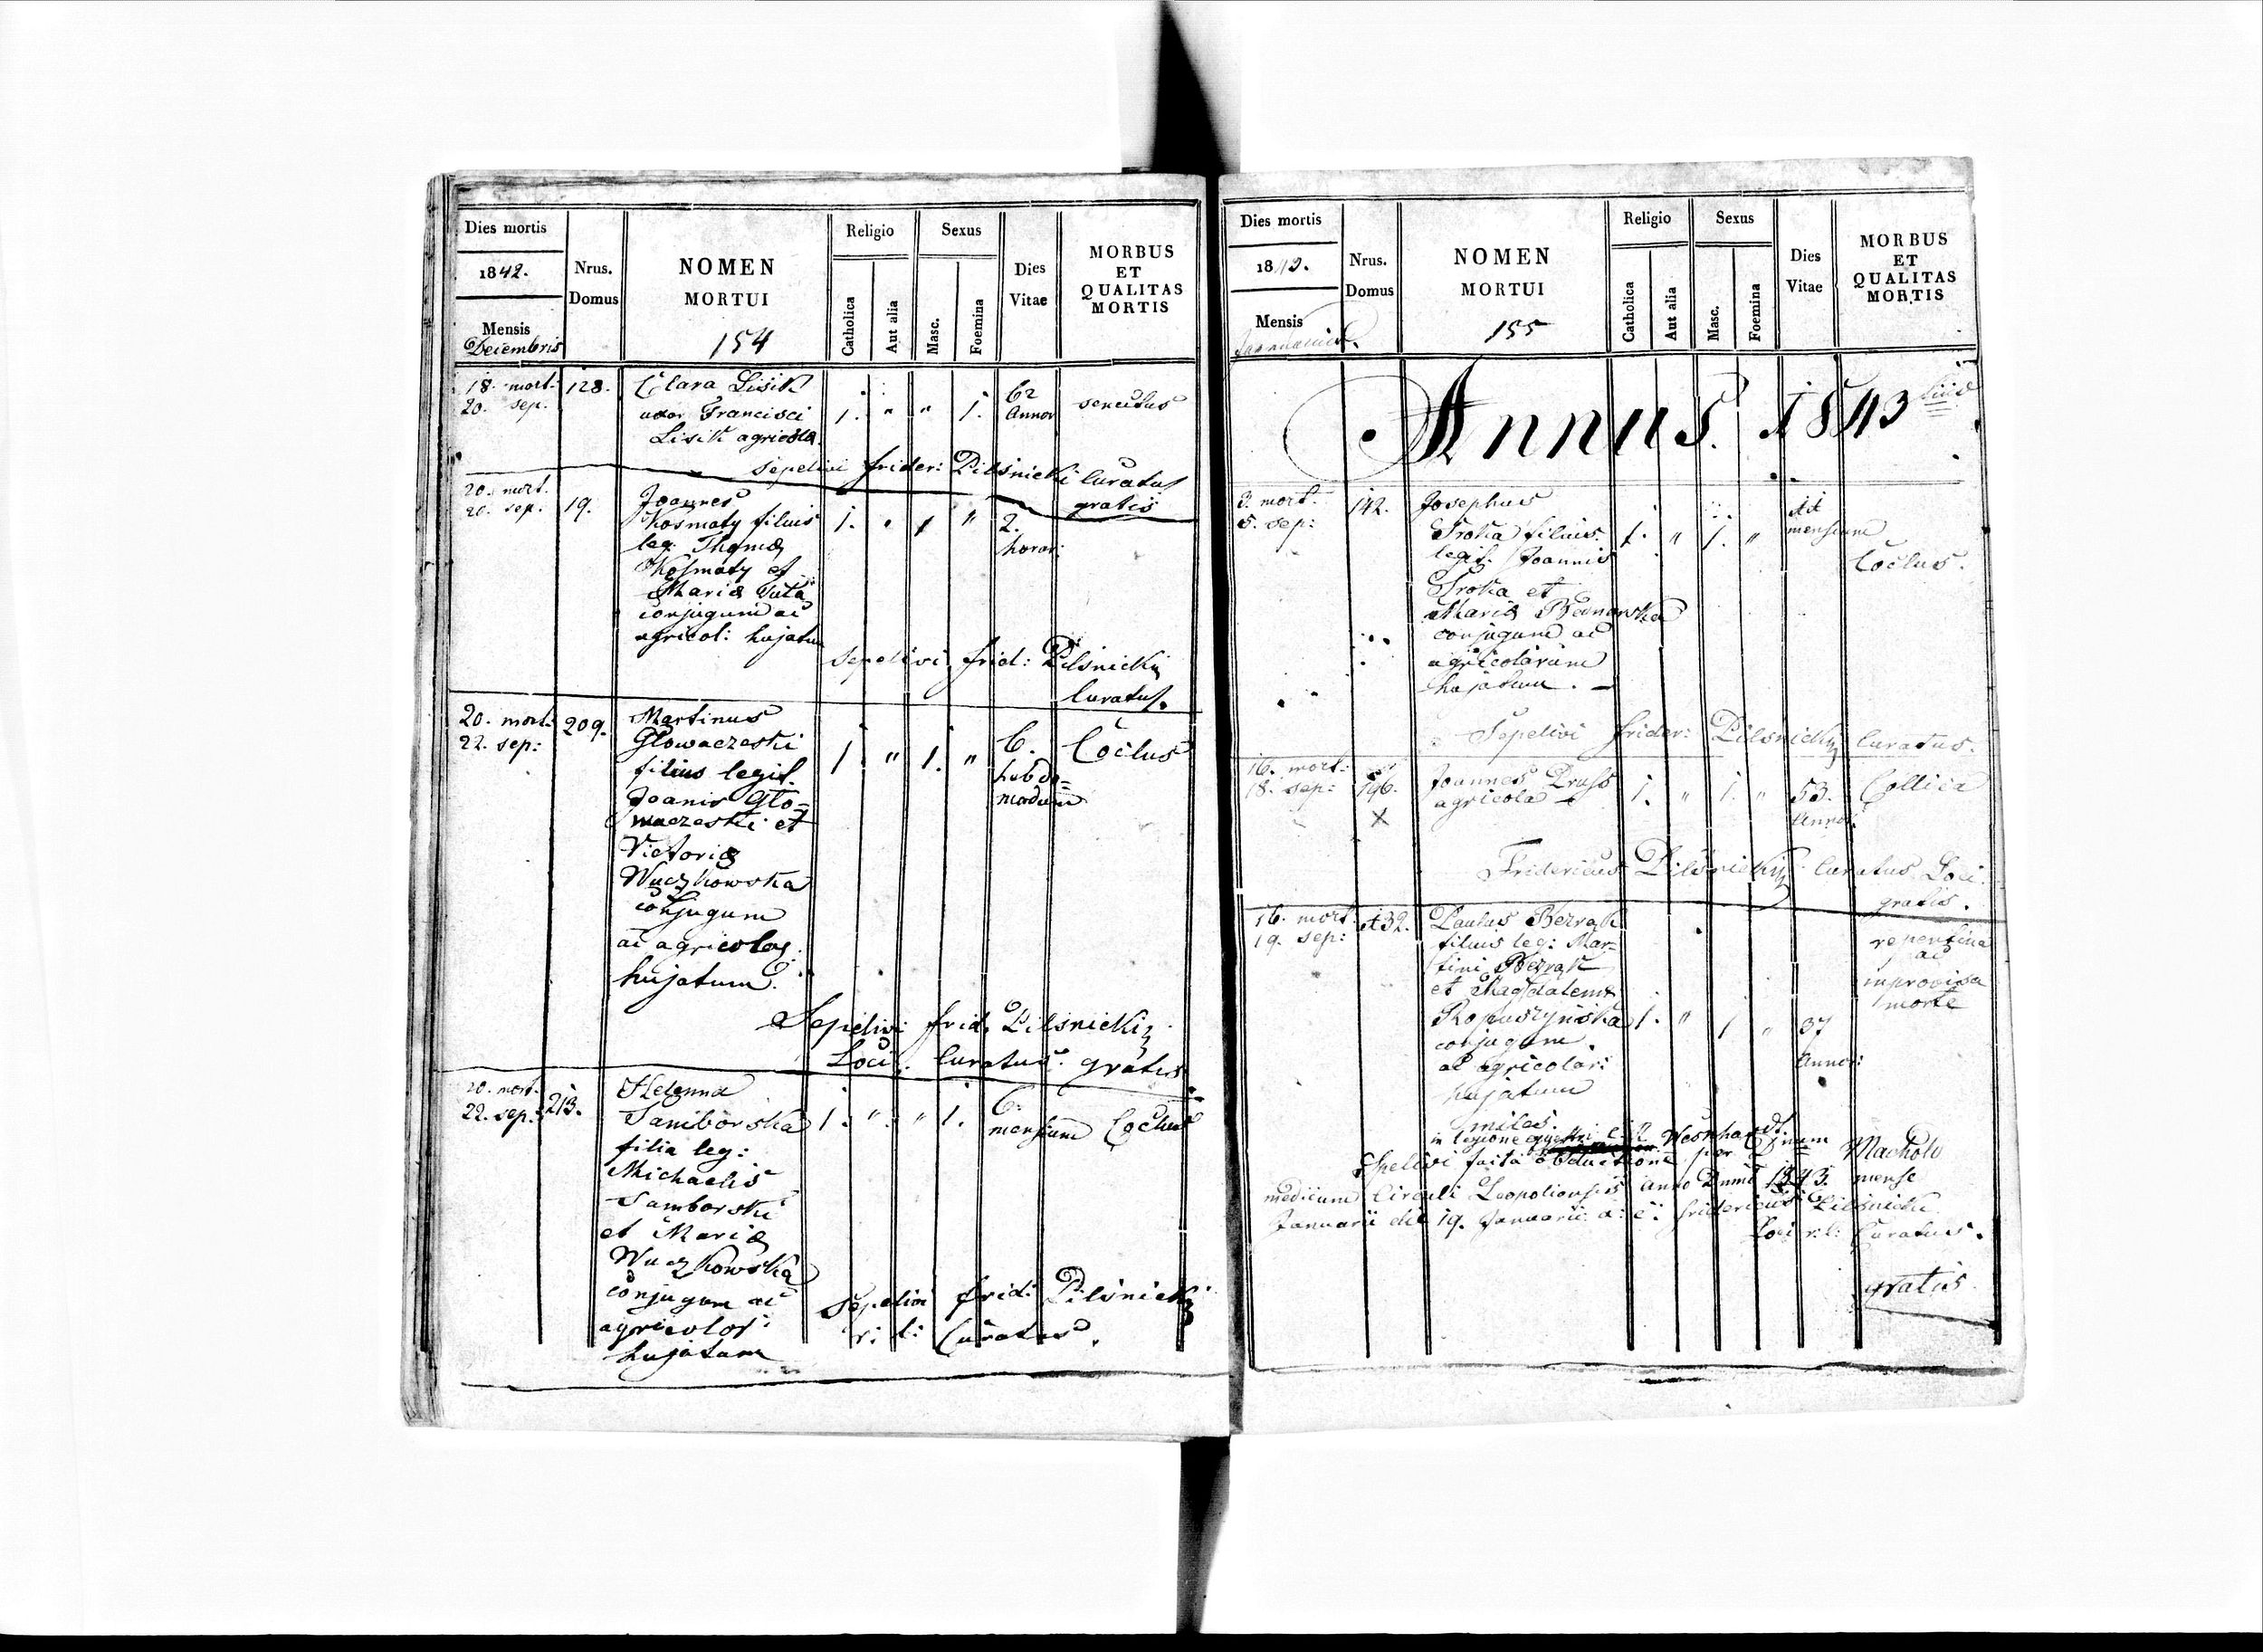 Dies mortis
1842.
Mensis
Decembris
Nrus.
Domus
NOMEN
MORTUI
154
Religio
Catholica
Aut alia
Sexus
Masc.
Foemina
Dies
Vitae
MORBUS
ET
QUALITAS
MORTIS
18. mort:
20. sep.
128.
Clara Lisik
uxor Francisci
Lisik agricola
1. " " 1.
62
Annor
senectus
sepelivi frider: Pilsnicki Curatus
gratis
20. mort.
20. sep.
19.
Joannes
Kosmaty filius
leg. Thomæ
Kosmaty et
Mariæ
conjugum ac
agricol: hujatum
1. " 1 "
2.
horar:
sepelivi frid: Pilsnicki
Curatus.
20. mort:
22. sep:
209.
Martinus
Glowaczeski
filius legit.
Joanis Glo=
waczeski et
Victoriæ
Wuczkowska
conjugum
ac agricolar.
hujatum.
1 " 1. "
6.
hebdo=
madum
Coclus
Sepelivi frid. Pilsnicki
Loci Curatus. gratis
20. mort.
22. sep:
213.
Helenna
Samborska
filia leg:
Michaelis
Samborski
et Mariæ
Wuczkowska
conjugum ac
agricolar:
hujatum
1. " " 1.
6.
mensium
Coclus
sepelivi frid: Pilsnicki
r: l: Curatus.
Dies mortis
1843.
Mensis
Nrus.
Domus
NOMEN
MORTUI
155
Religio
Catholica
Aut alia
Sexus
Masc.
Foemina
Dies
Vitae
MORBUS
ET
QUALITAS
MORTIS
Annus. 1843
3. mort.
5. sep:
142.
Josephus
Sroka filius
legit. Joannis
Sroka et
Mariæ Bednarska
conjugum ac
agricolarum
hujatum.
1. " 1. "
11
mensium
Coclus.
Sepelivi frider: Pilsnicki Curatus.
16. mort:
18. sep:
196.
X
Joannes Pruss
agricola
1. " 1. "
53.
Annor.
Collica
Fridericus Pilsnicki Curatus Loci
gratis.
16. mort.
19. sep:
132.
Paulus Bezrąk
filius leg: Mar=
tini Bezrąk
et Magdalenæ
Ropuszynska
conjugum.
ac agricolar:
hujatum
miles.
1. " 1 "
37
Annor:
repentina
ac
improvisa
morte
in legione
Sepelivi facta obductione per Dnum Machold
medicum Circuli Leopoliensis anno Dnni 1843. mense
Januarii die 19. Januarii a: c: fridericus Pilsnicki
Loci r: l: Curatus.
gratis